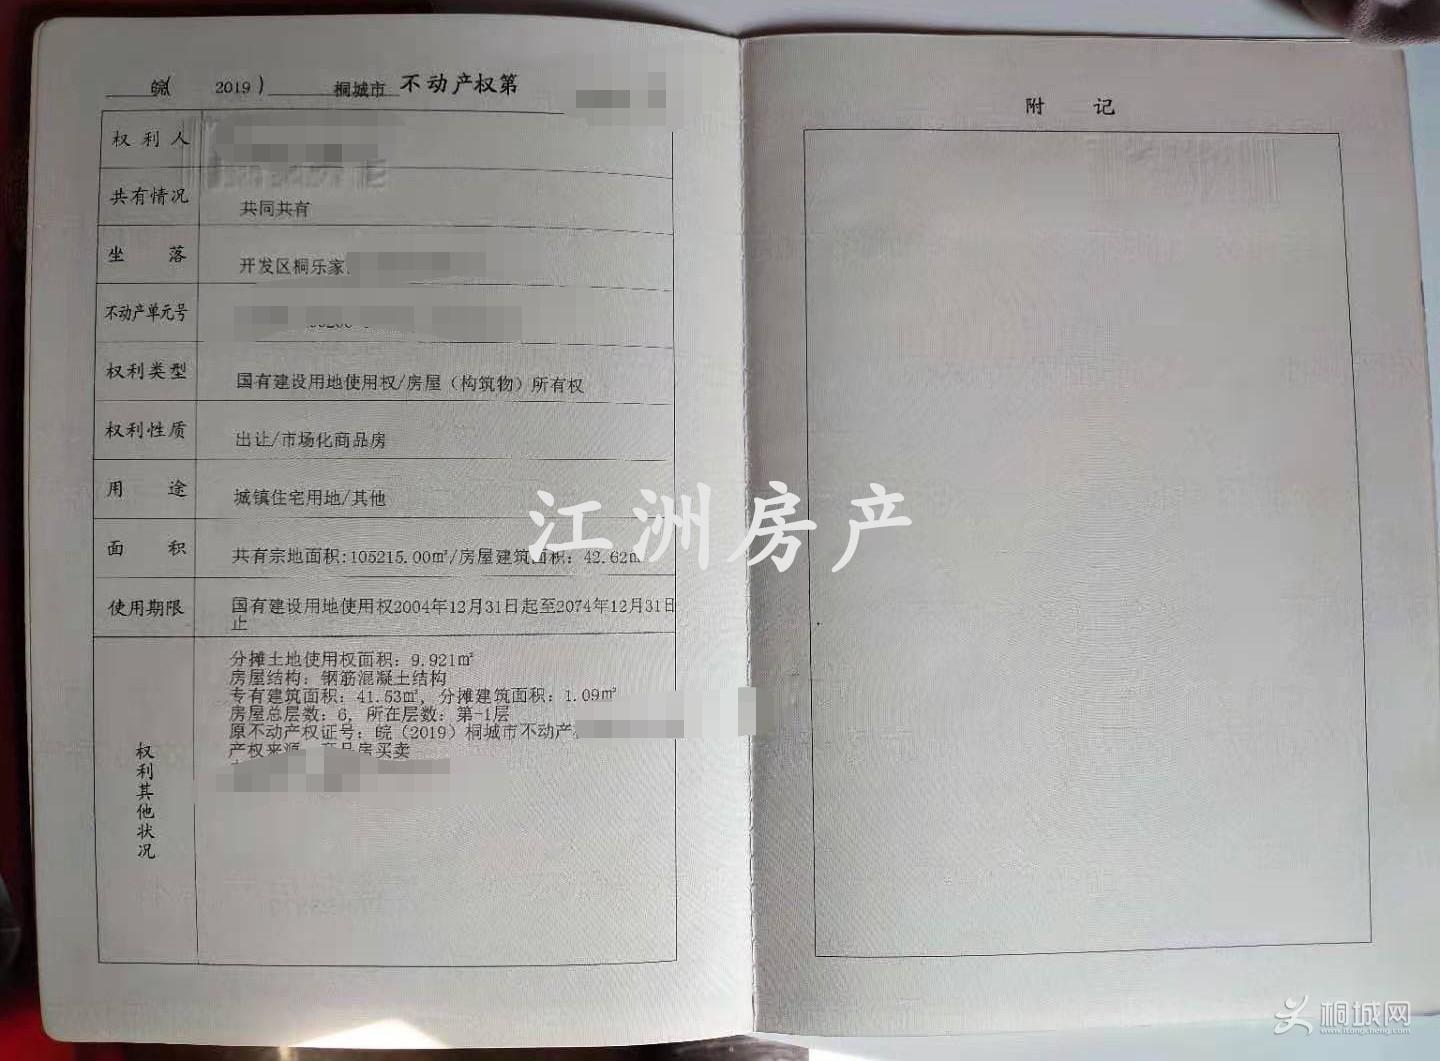 皖( 2019 ) 桐城市 不动产权第
权利人
共有情况 共同共有
坐落 开发区桐乐家
不动产单元号
权利类型 国有建设用地使用权/房屋（构筑物）所有权
权利性质 出让/市场化商品房
用途 城镇住宅用地/其他
面积 共有宗地面积:105215.00㎡/房屋建筑面积: 42.62㎡
使用期限 国有建设用地使用权2004年12月31日起至2074年12月31日
止
权利其他状况
分摊土地使用权面积: 9.921㎡
房屋结构: 钢筋混凝土结构
专有建筑面积: 41.53㎡, 分摊建筑面积: 1.09㎡
房屋总层数: 6, 所在层数: 第-1层
原不动产权证号: 皖（2019）桐城市不动产
产权来源 商品房买卖
附记
江洲房产
桐城网
www.itongcheng.com